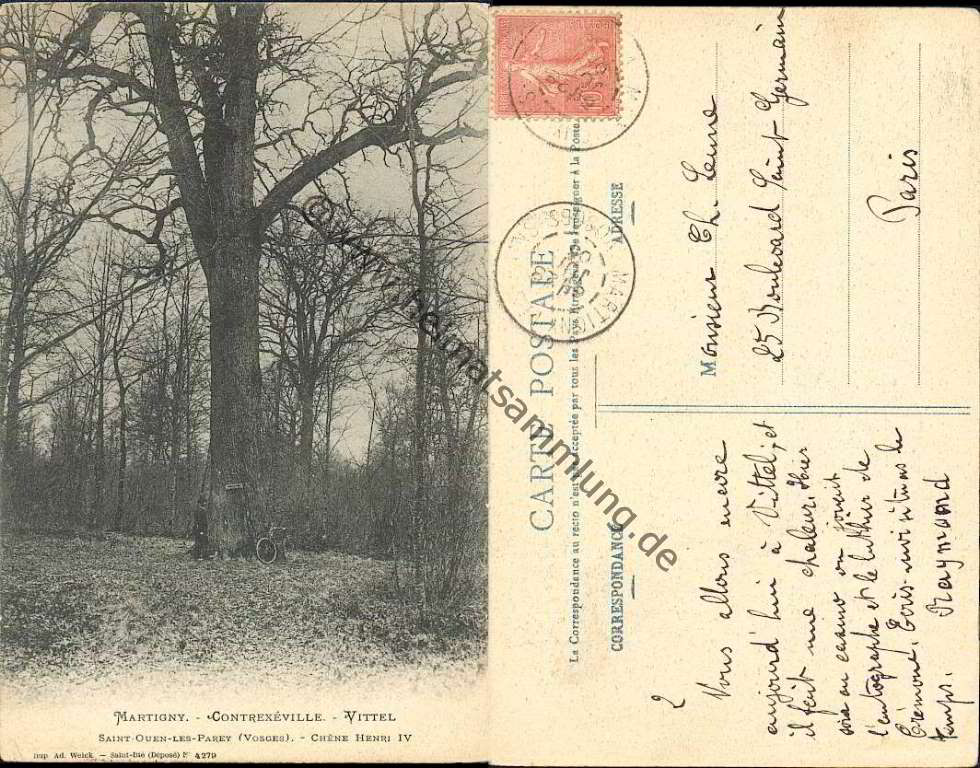 MARTIGNY. - CONTREXÉVILLE. - VITTEL
SAINT-OUEN-LES-PAREY (VOSGES). - CHÊNE HENRI IV
Imp. Ad. Weick. — Saint-Dié (Déposé) N° 4279
© www.heimatsammlung.de
CARTE POSTALE
La Correspondance au recto n'est acceptée par tous les pays à la Poste
CORRESPONDANCE
ADRESSE
10
MARTI
Monsieur Ch. Leune
25 Boulevard Saint Germain
Paris
2
Nous allons encore
aujourd'hui à Vittel, et
il fait une chaleur. Hier
soir au casino on jouait
et le luthier de
Crémone. Écris-moi si tu as le
temps. Raymond